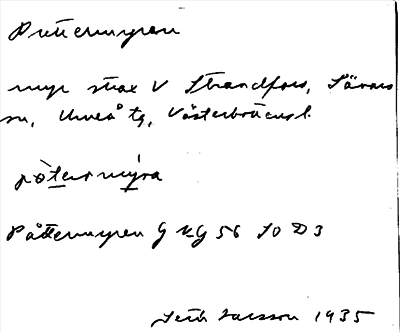 Puttermyren
myr strax V Strandfors, Sävars
sn, Umeå tg, Västerbottens l.
pòtermýra
Påttermyren G KG 56 SO D3
Larsson 1935